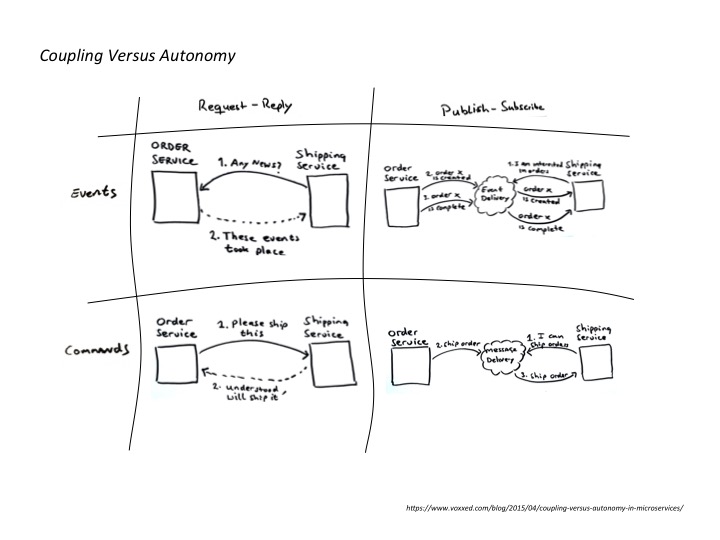 Coupling Versus Autonomy
Request-Reply
Publish-Subscribe
Events
ORDER
SERVICE
1. Any News?
Shipping
Service
2. These events
took place
Order
Service
2. order x
is created
2. order x
is complete
Event
Delivery
1. I am interested
in orders
Shipping
Service
order x
is created
order x
is complete
Commands
Order
Service
1. Please ship
this
Shipping
Service
2. understood,
will ship it
Order
Service
2. ship order
Message
Delivery
1. I can
ship orders
Shipping
Service
3. ship order
https://www.voxxed.com/blog/2015/04/coupling-versus-autonomy-in-microservices/